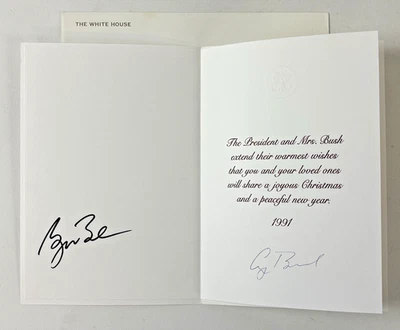 THE WHITE HOUSE
The President and Mrs. Bush
extend their warmest wishes
that you and your loved ones
will share a joyous Christmas
and a peaceful new year.
1991